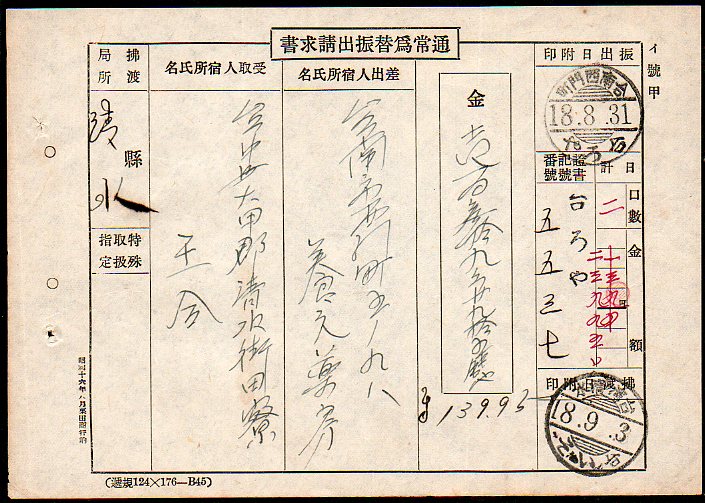 通常為替振出請求書
イ號甲
振出日附印
台南西門町
18.8.31
日計
口數
二
金額
證書記號番號
台ろや
五五三七
拂渡日附印
8.9.3
金
壱百参拾九円九拾五銭
139.95
差出人宿所氏名
台南市西門町五ノ九八
養元薬房
受取人宿所氏名
台中州大甲郡清水街田寮
王合
拂渡局所
縣
水
特殊取扱指定
(遞規124×176—B45)